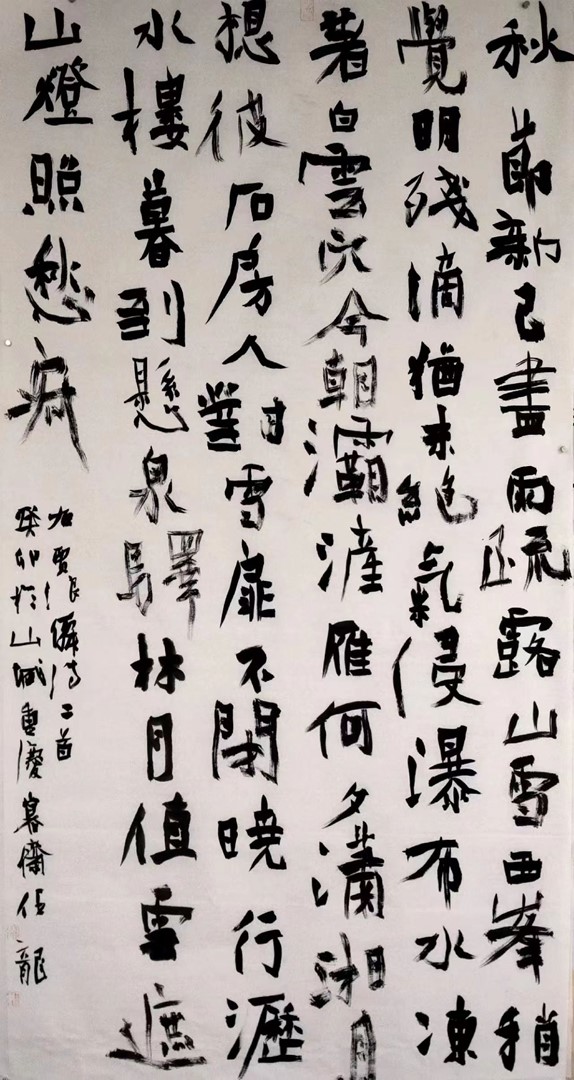 秋節新已盡雨疏露山雪西峯稍
覺明殘滴猶未絕氣侵瀑布水凍
著白雲穴今朝灞滻雁何夕瀟湘月
想彼石房人對雪扉不閉曉行瀝
水樓暮到懸泉驛林月值雲遮
山燈照愁寂
右賈詩二首
癸卯於山城重慶龍